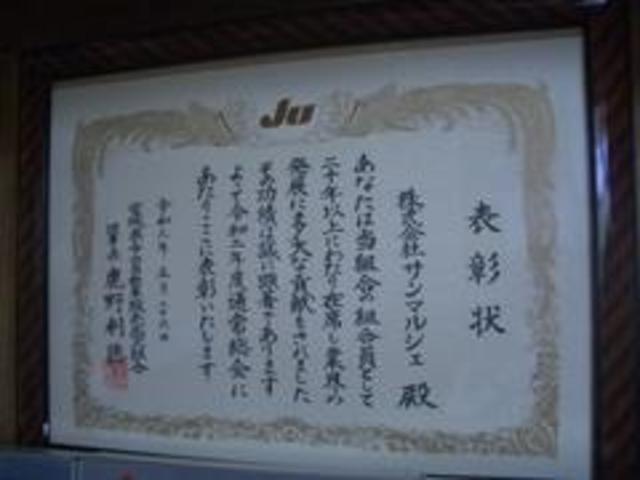 Ju
表彰状
株式会社サンマルシェ 殿
あなたは当組合の組合員として
二十年以上にわたり在席し業界の
発展に多大な貢献をされました
その功績は誠に顕著であります
よって令和二年度通常総会に
あたりここに表彰いたします
令和二年五月二十六日
理事長 鹿野利